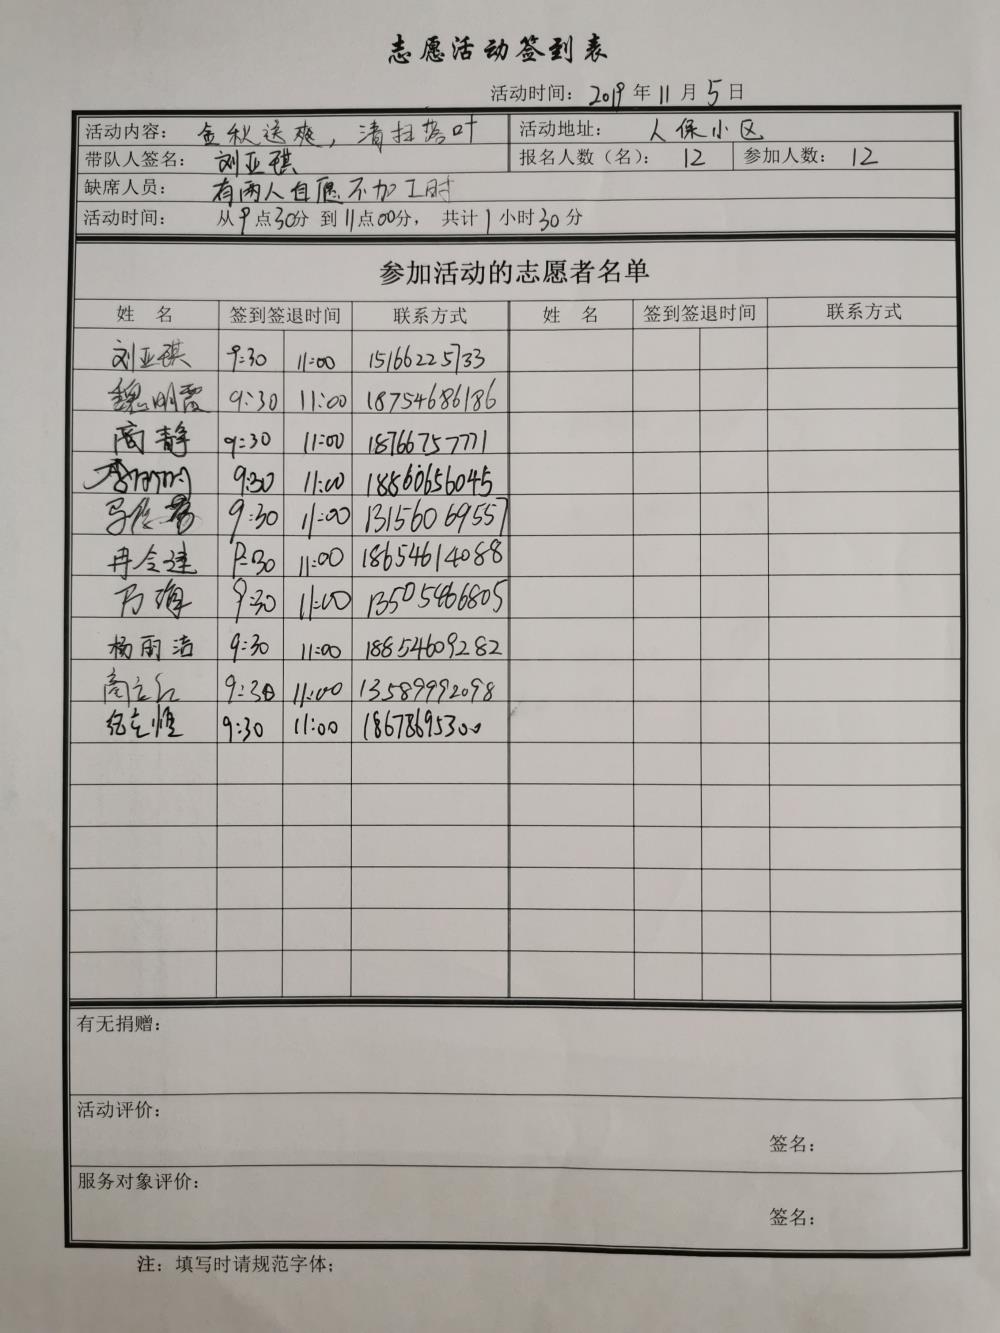 志愿活动签到表
活动时间： 2019 年 11 月 5 日
活动内容： 金秋送爽，清扫落叶 活动地址： 人保小区
带队人签名： 刘亚琪 报名人数（名）： 12 参加人数： 12
缺席人员： 有两人自愿不加工时
活动时间： 从 9 点 30 分 到 11 点 00 分， 共计 1 小时 30 分
参加活动的志愿者名单
姓 名 签到签退时间 联系方式 姓 名 签到签退时间 联系方式
刘亚琪 9:30 11:00 15166225733
魏明霞 9:30 11:00 18754686186
商静 9:30 11:00 18766757771
9:30 11:00 18560656045
9:30 11:00 13156069557
冉令建 9:30 11:00 18654614088
万梅 9:30 11:00 13505466805
杨丽洁 9:30 11:00 18854609282
商立红 9:30 11:00 13589992098
9:30 11:00 18678695300
有无捐赠：
活动评价：
签名：
服务对象评价：
签名：
注：填写时请规范字体；